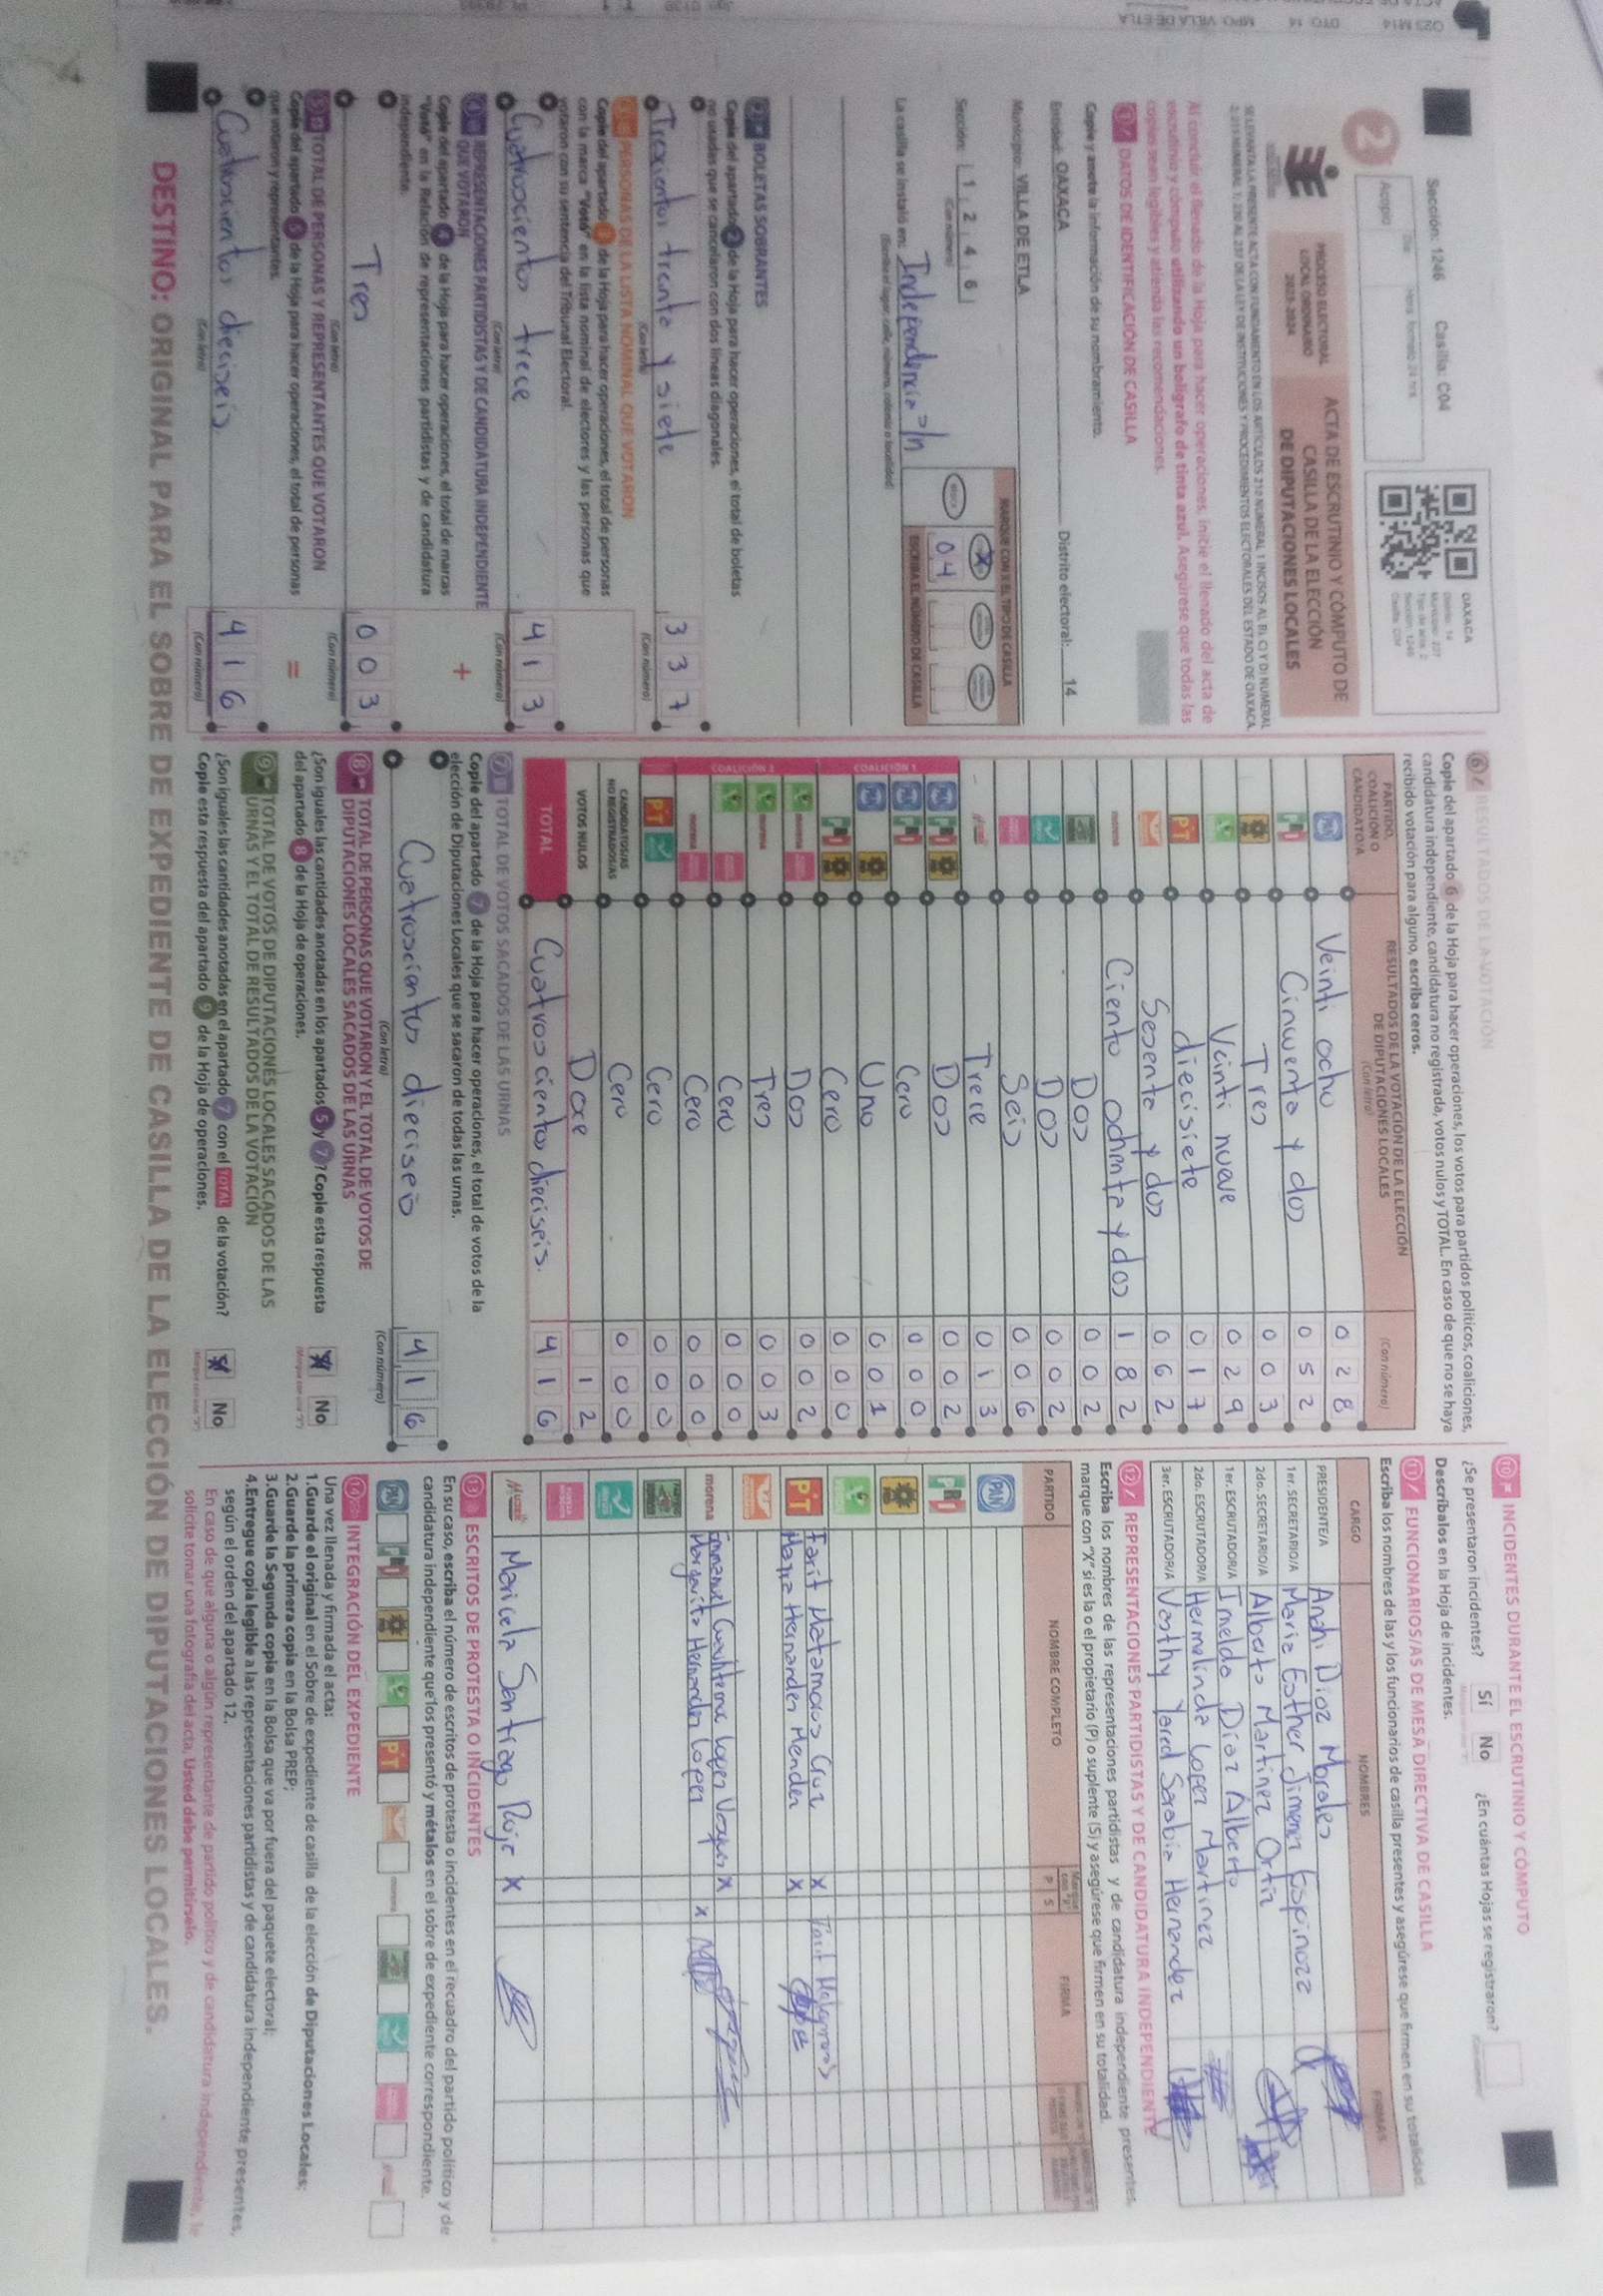 Sección: 1246 Casilla: C04
2
Acopio
PROCESO ELECTORAL
LOCAL ORDINARIO
2023-2024
ACTA DE ESCRUTINIO Y CÓMPUTO DE
CASILLA DE LA ELECCIÓN
DE DIPUTACIONES LOCALES
OAXACA
Al concluir el llenado de la Hoja para hacer operaciones, inicie el llenado del acta de
escrutinio y cómputo utilizando un bolígrafo de tinta azul. Asegúrese que todas las
copias sean legibles y atienda las recomendaciones.
1 DATOS DE IDENTIFICACIÓN DE CASILLA
Copie y anote la información de su nombramiento.
Entidad: OAXACA Distrito electoral: 14
Municipio: VILLA DE ETLA
Sección: 1 2 4 6
(Con número)
MARQUE CON X EL TIPO DE CASILLA
X
ESCRIBA EL NÚMERO DE CASILLA
04
La casilla se instaló en: Independencia s/n
(Escriba el lugar, calle, número, colonia o localidad)
2 BOLETAS SOBRANTES
Copie del apartado 2 de la Hoja para hacer operaciones, el total de boletas
no usadas que se cancelaron con dos líneas diagonales.
Trescientos treinta y siete 3 3 7
(Con letra) (Con número)
3 PERSONAS DE LA LISTA NOMINAL QUE VOTARON
Copie del apartado 3 de la Hoja para hacer operaciones, el total de personas
con la marca "Votó" en la lista nominal de electores y las personas que
votaron con su sentencia del Tribunal Electoral.
Cuatrocientos trece 4 1 3
(Con letra) (Con número)
4 REPRESENTACIONES PARTIDISTAS Y DE CANDIDATURA INDEPENDIENTE
QUE VOTARON
Copie del apartado 4 de la Hoja para hacer operaciones, el total de marcas
"Votó" en la Relación de representaciones partidistas y de candidatura
independiente.
+
Tres 0 0 3
(Con letra) (Con número)
5 TOTAL DE PERSONAS Y REPRESENTANTES QUE VOTARON
Copie del apartado 5 de la Hoja para hacer operaciones, el total de personas
que votaron y representantes.
=
Cuatrocientos dieciseis 4 1 6
(Con letra) (Con número)
6 RESULTADOS DE LA VOTACIÓN
Copie del apartado 6 de la Hoja para hacer operaciones, los votos para partidos políticos, coaliciones,
candidatura independiente, candidatura no registrada, votos nulos y TOTAL. En caso de que no se haya
recibido votación para alguno, escriba ceros.
PARTIDO,
COALICIÓN O
CANDIDATO/A
RESULTADOS DE LA VOTACIÓN DE LA ELECCIÓN
DE DIPUTACIONES LOCALES
(Con letra)
(Con número)
PAN Veinti ocho 0 2 8
PRI Cincuenta y dos 0 5 2
Tres 0 0 3
Veinti nueve 0 2 9
PT diecisiete 0 1 7
Sesenta y dos 0 6 2
morena Ciento ochenta y dos 1 8 2
Dos 0 0 2
Dos 0 0 2
Seis 0 0 6
Trece 0 1 3
COALICIÓN 1
PAN PRI Dos 0 0 2
PAN PRI Cero 0 0 0
PAN Uno 0 0 1
PRI Cero 0 0 0
COALICIÓN 2
morena Dos 0 0 2
morena Tres 0 0 3
Cero 0 0 0
morena Cero 0 0 0
PT Cero 0 0 0
CANDIDATOS/AS
NO REGISTRADOS/AS
Cero 0 0 0
VOTOS NULOS Doce 1 2
TOTAL Cuatroscientos dieciseis. 4 1 6
7 TOTAL DE VOTOS SACADOS DE LAS URNAS
Copie del apartado 7 de la Hoja para hacer operaciones, el total de votos de la
elección de Diputaciones Locales que se sacaron de todas las urnas.
Cuatroscientos dieciseis 4 1 6
(Con letra) (Con número)
8 TOTAL DE PERSONAS QUE VOTARON Y EL TOTAL DE VOTOS DE
DIPUTACIONES LOCALES SACADOS DE LAS URNAS
¿Son iguales las cantidades anotadas en los apartados 5 y 7? Copie esta respuesta
del apartado 8 de la Hoja de operaciones.
Sí No
9 TOTAL DE VOTOS DE DIPUTACIONES LOCALES SACADOS DE LAS
URNAS Y EL TOTAL DE RESULTADOS DE LA VOTACIÓN
¿Son iguales las cantidades anotadas en el apartado 7 con el TOTAL de la votación?
Copie esta respuesta del apartado 9 de la Hoja de operaciones.
Sí No
10 INCIDENTES DURANTE EL ESCRUTINIO Y CÓMPUTO
¿Se presentaron incidentes? Sí No ¿En cuántas Hojas se registraron?
Descríbalos en la Hoja de incidentes.
11 FUNCIONARIOS/AS DE MESA DIRECTIVA DE CASILLA
Escriba los nombres de las y los funcionarios de casilla presentes y asegúrese que firmen en su totalidad.
CARGO NOMBRES FIRMAS
PRESIDENTE/A Anahi Diaz Morales
1er. SECRETARIO/A Maria Esther Jimenez Espinoza
2do. SECRETARIO/A Alberto Martinez Ortiz
1er. ESCRUTADOR/A Imelda Diaz Alberto
2do. ESCRUTADOR/A Hermelinda Lopez Martinez
3er. ESCRUTADOR/A Vasthy Yared Sarabia Hernandez
12 REPRESENTACIONES PARTIDISTAS Y DE CANDIDATURA INDEPENDIENTE
Escriba los nombres de las representaciones partidistas y de candidatura independiente presentes,
marque con "X" si es la o el propietario (P) o suplente (S) y asegúrese que firmen en su totalidad.
PARTIDO NOMBRE COMPLETO P S FIRMA
PAN
PRI
PT Farit Matamoros Cruz X
Maria Hernandez Mendez X
morena Emmanuel Cuauhtemoc Lopez Vasquez X
Margarita Hernandez Lopez X
Maricela Santiago Rojas X
13 ESCRITOS DE PROTESTA O INCIDENTES
En su caso, escriba el número de escritos de protesta o incidentes en el recuadro del partido político y de
candidatura independiente que los presentó y métalos en el sobre de expediente correspondiente.
PAN PRI PT
14 INTEGRACIÓN DEL EXPEDIENTE
Una vez llenada y firmada el acta:
1.Guarde el original en el Sobre de expediente de casilla de la elección de Diputaciones Locales;
2.Guarde la primera copia en la Bolsa PREP;
3.Guarde la Segunda copia en la Bolsa que va por fuera del paquete electoral;
4.Entregue copia legible a las representaciones partidistas y de candidatura independiente presentes,
según el orden del apartado 12.
En caso de que alguna o algún representante de partido político y de candidatura independiente, le
solicite tomar una fotografía del acta, Usted debe permitírselo.
DESTINO: ORIGINAL PARA EL SOBRE DE EXPEDIENTE DE CASILLA DE LA ELECCIÓN DE DIPUTACIONES LOCALES.